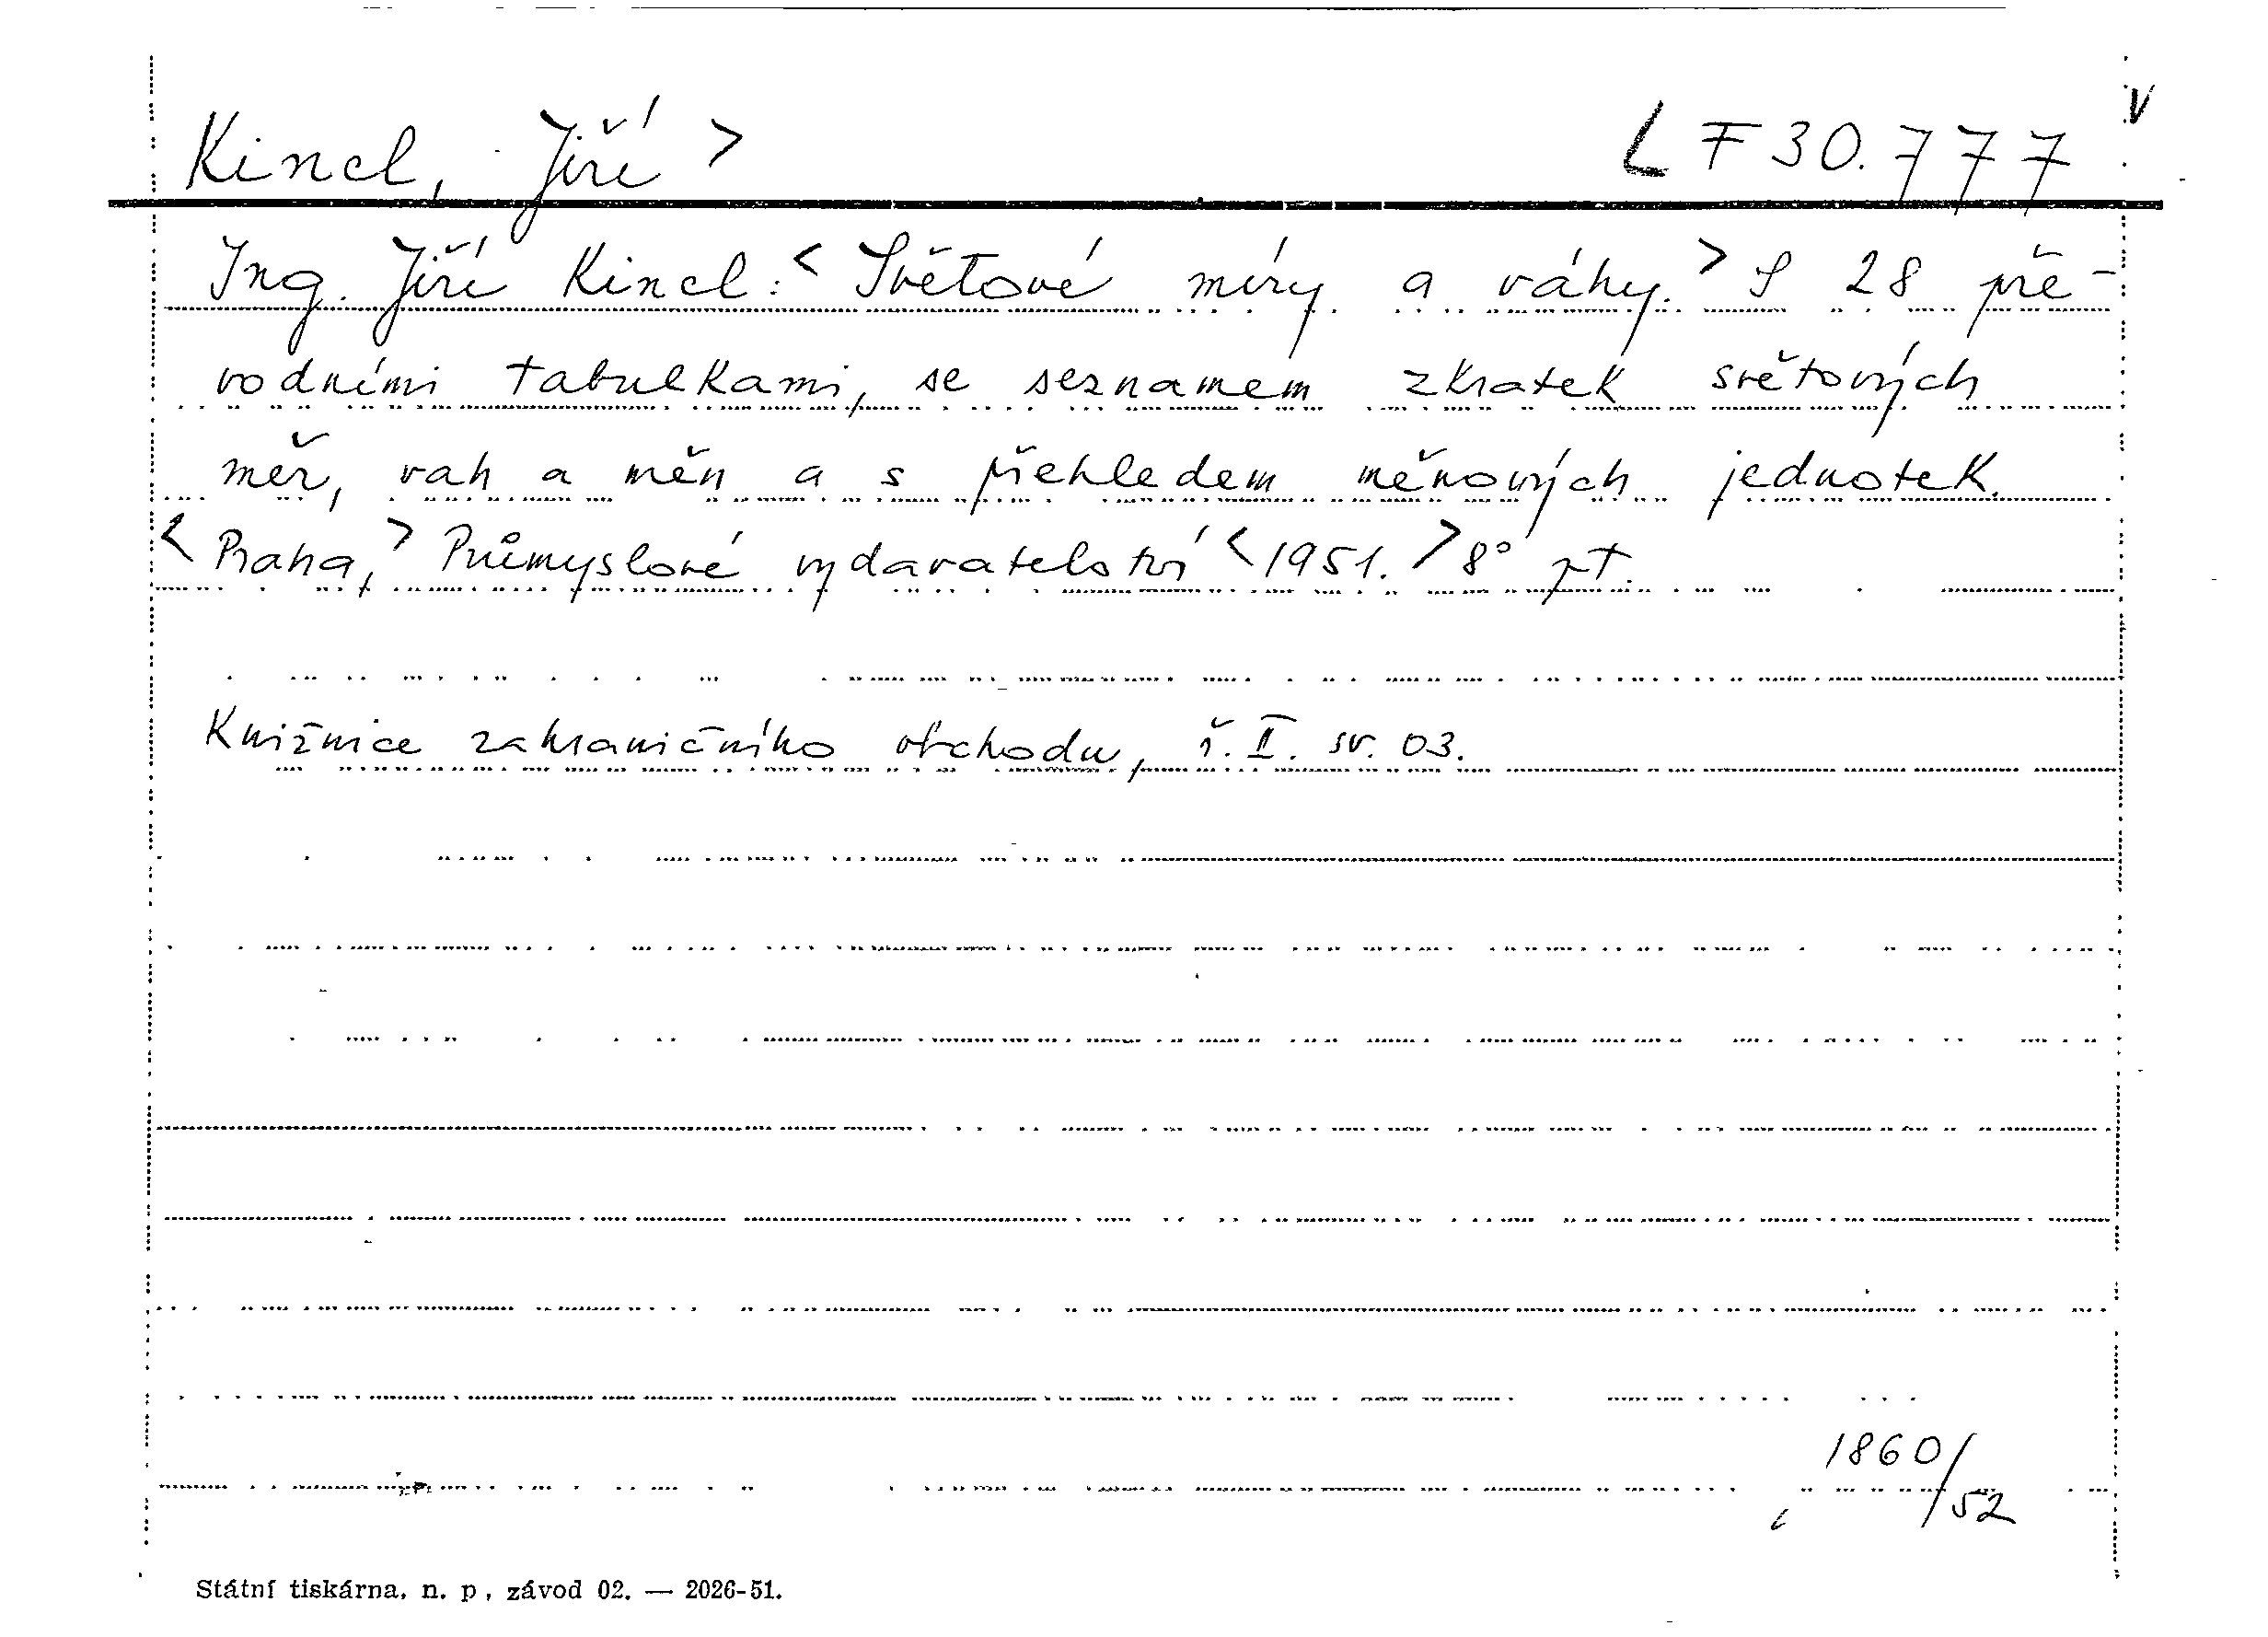 Kincl, Jiří > L F 30.777 v
Ing. Jiří Kincl: < Světové míry a váhy. > S 28 pře-
vodními tabulkami, se seznamem zkratek světových
měr, vah a měn a s přehledem měnových jednotek.
< Praha, > Průmyslové vydavatelství < 1951. > 8°
Knižnice zahraničního obchodu, ř. II. sv. 03.
1860/52
Státní tiskárna, n. p., závod 02. — 2026-51.